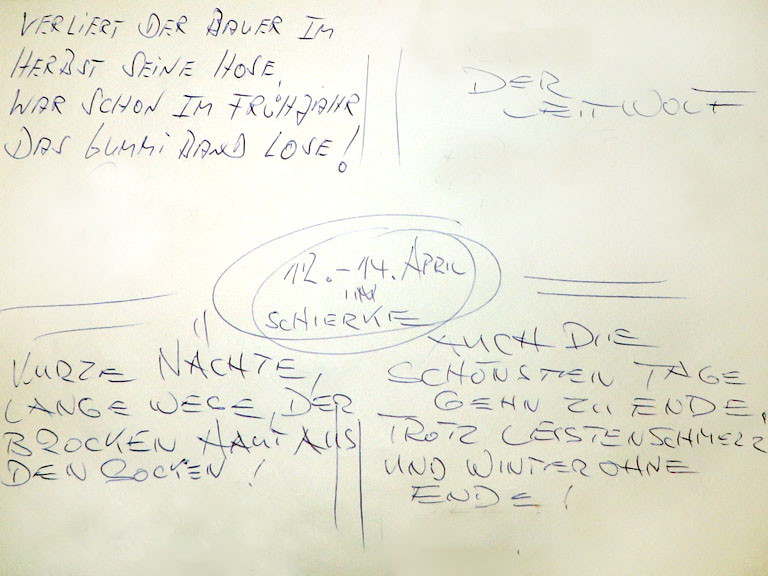 VERLIERT DER BAUER IM
HERBST SEINE HOSE,
WAR SCHON IM FRÜHJAHR
DAS GUMMIBAND LOSE!
DER
LEITWOLF
12.-14. APRIL
IN
SCHIERKE
KURZE NÄCHTE,
LANGE WEGE, DER
BROCKEN HAUT AUS
DEN SOCKEN!
AUCH DIE
SCHÖNSTEN TAGE
GEHN ZU ENDE,
TROTZ LEISTENSCHMERZ
UND WINTER OHNE
ENDE!